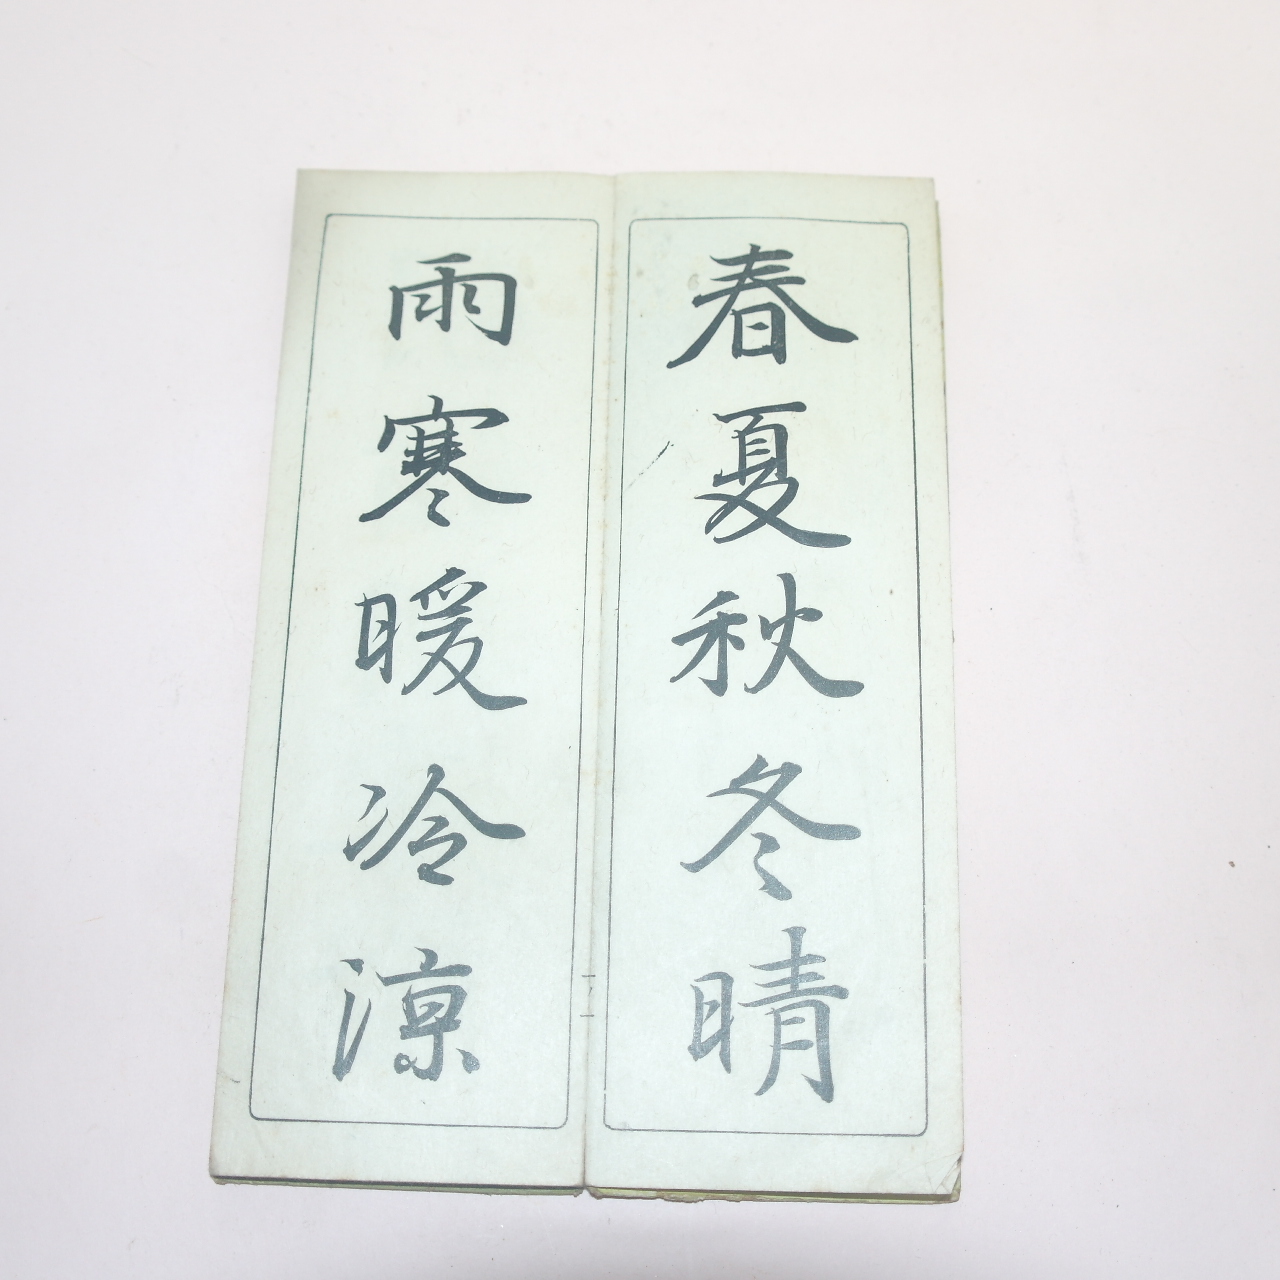 春夏秋冬晴
雨寒暖冷涼